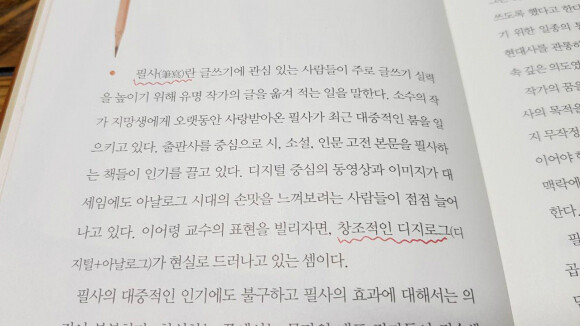 필사(筆寫)란 글쓰기에 관심 있는 사람들이 주로 글쓰기 실력
을 높이기 위해 유명 작가의 글을 옮겨 적는 일을 말한다. 소수의 작
가 지망생에게 오랫동안 사랑받아온 필사가 최근 대중적인 붐을 일
으키고 있다. 출판사를 중심으로 시, 소설, 인문 고전 본문을 필사하
는 책들이 인기를 끌고 있다. 디지털 중심의 동영상과 이미지가 대
세임에도 아날로그 시대의 손맛을 느껴보려는 사람들이 점점 늘어
나고 있다. 이어령 교수의 표현을 빌리자면, 창조적인 디지로그(디
지털+아날로그)가 현실로 드러나고 있는 셈이다.
필사의 대중적인 인기에도 불구하고 필사의 효과에 대해서는 의
쓰도록 했다고 한다
기 위한 일종의
현대사를 관통하
속 깊은 의도였
작가의 꿈을
사의 목적을
지 무작정
이어야 하
맥락에
한다.
필
곱